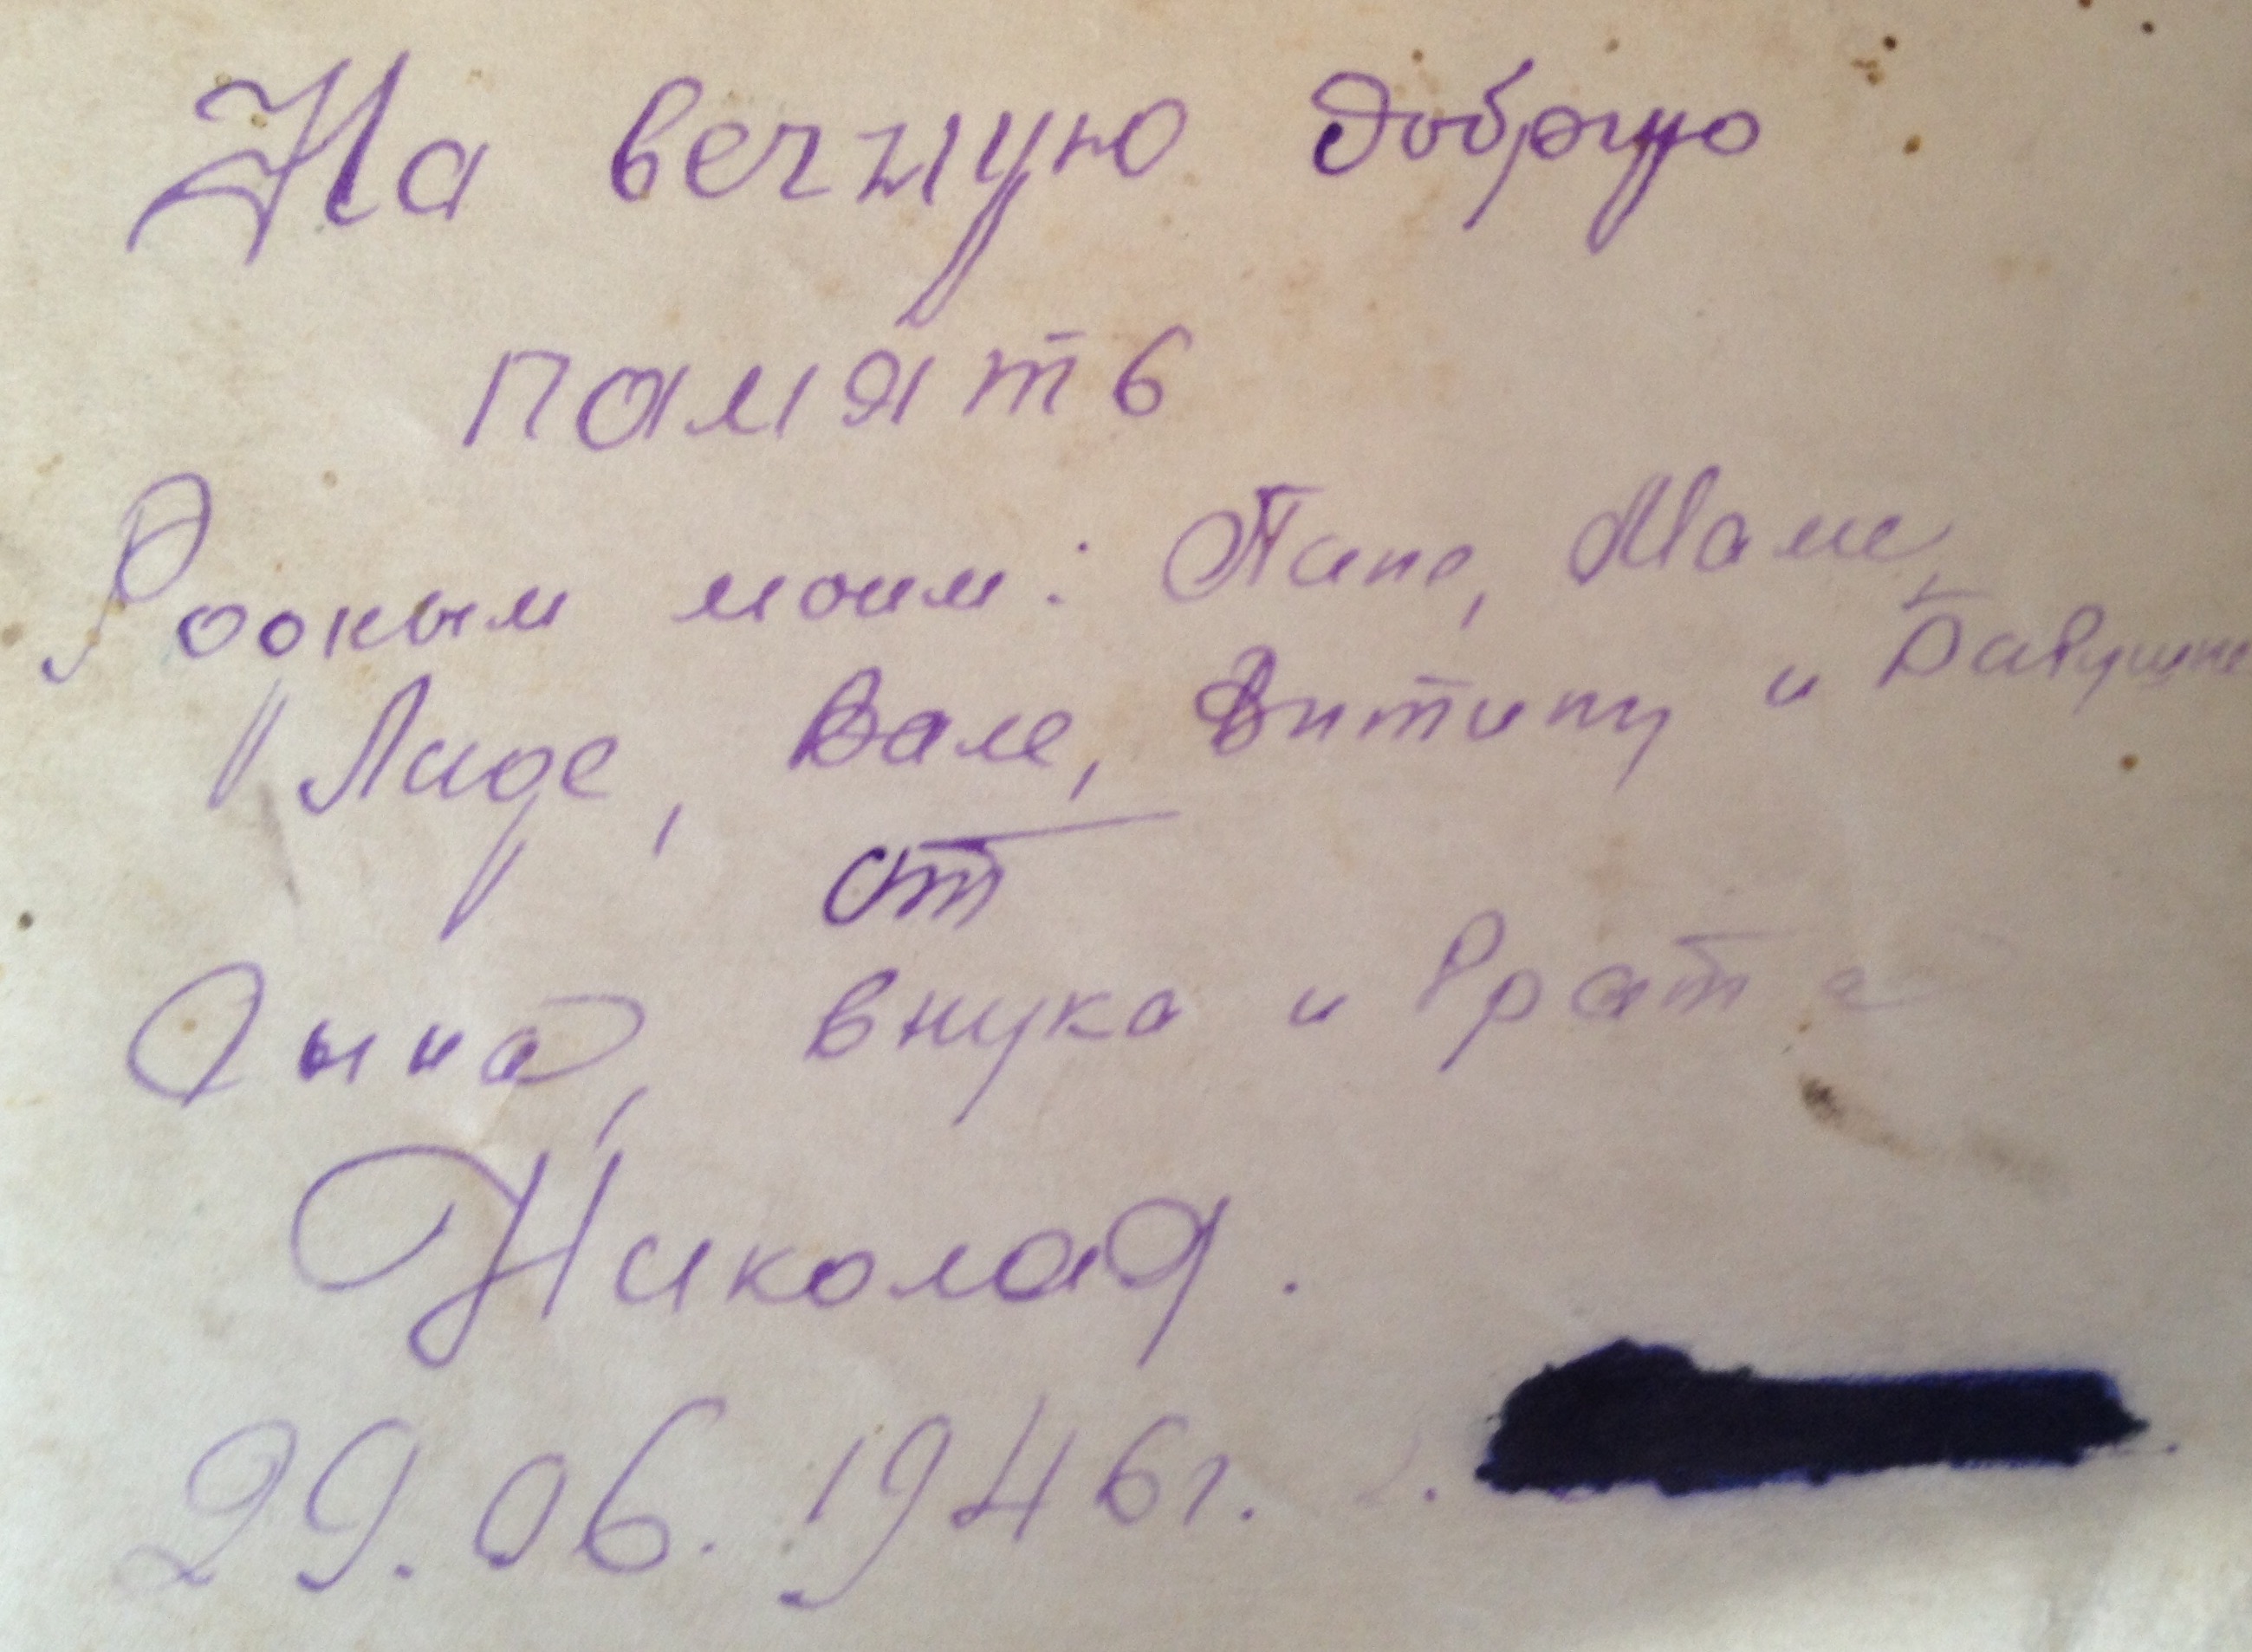 На вечную добрую
память
Родным моим: Папе, Маме,
Лиде, Вале, и Бабушке
от
Сына, внука и брата
Николай.
29.06.1946г. г.